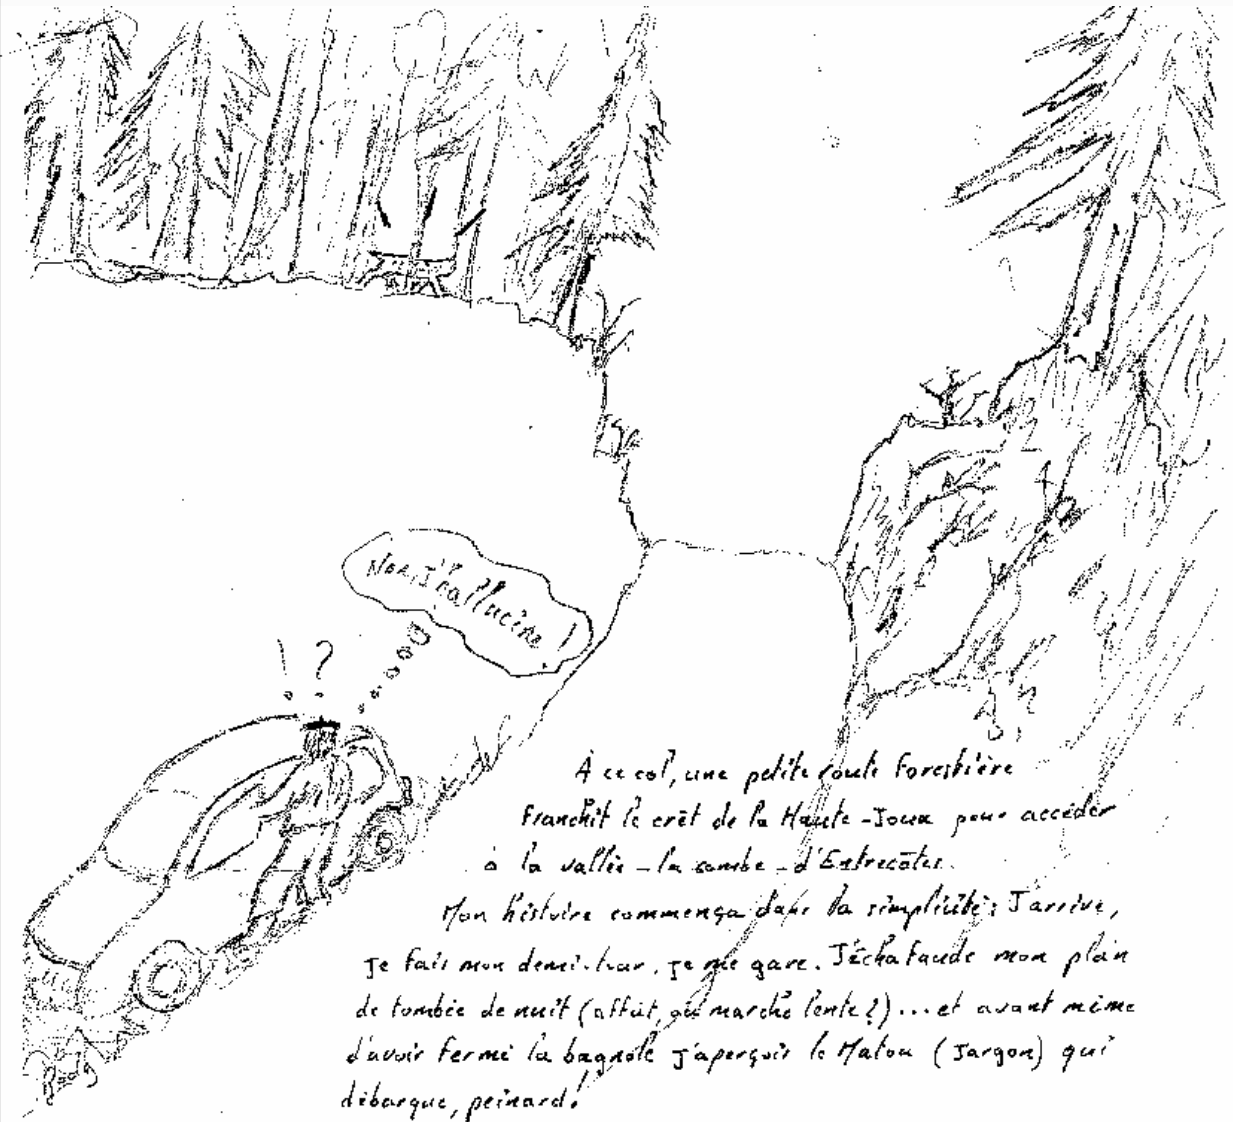 Non, J'hallucine !
! ?
À ce col, une petite route forestière
franchit le crêt de la Haute-Joux pour accéder
à la vallée - la combe - d'Entrecôtes.
Mon histoire commença dans la simplicité : J'arrive,
je fais mon demi-tour, je me gare. J'échafaude mon plan
de tombée de nuit (affût, ou marche lente ?)... et avant même
d'avoir fermé la bagnole j'aperçois le Matou (Jargon) qui
débarque, peinard !